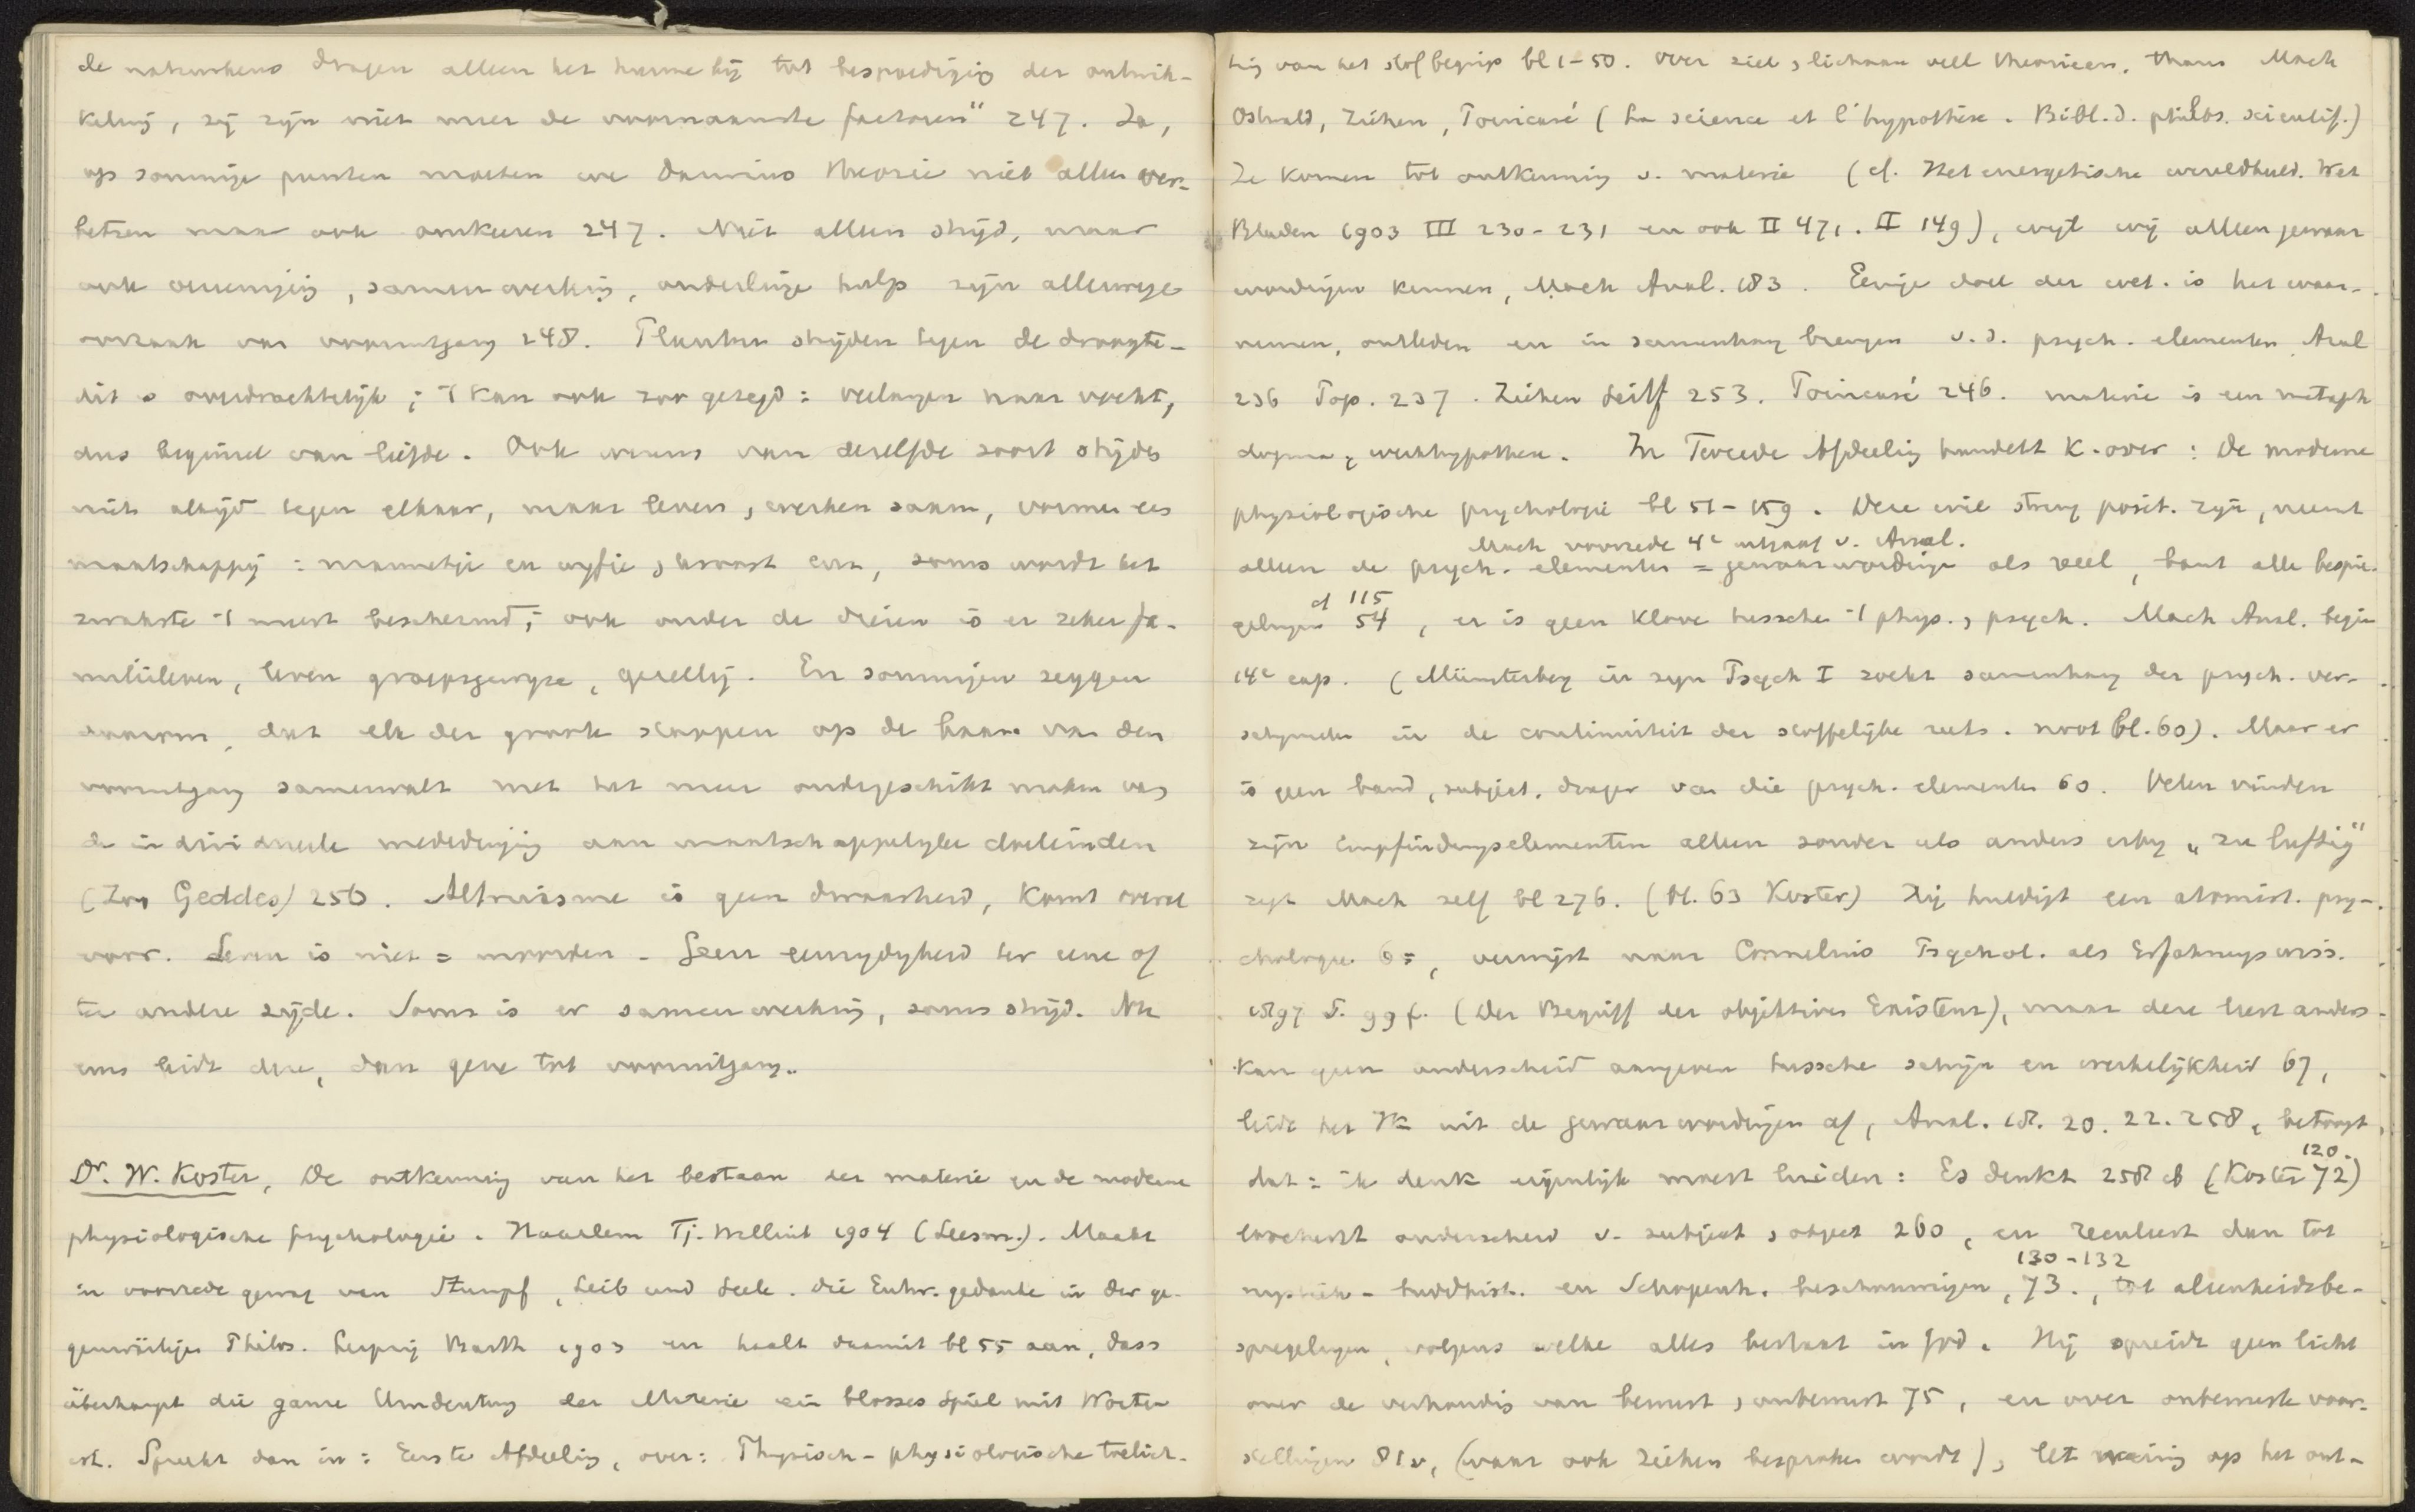 de natuurkeus dragen alleen het hunne bij tot bespoediging der ontwik-
keling, zij zijn niet meer de voornaamste factoren" 247. Ja,
op sommige punten moeten we Darwins theorie niet alleen ver-
beteren maar ook omkeeren 247. Niet alleen strijd, maar
ook vereeniging, samenwerking, onderlinge hulp zijn allerwege
oorzaak van vooruitgang 248. Planten strijden tegen de droogte -
dit is overdrachtelijk; 't kan ook zoo gezegd: verlangen naar vocht,
dus beginsel van liefde. Ook wezens van dezelfde soort strijden
niet altijd tegen elkaar, maar leven, werken saam, vormen een
maatschappij: mannetje en wijfje, kroost enz, soms wordt het
zwakste 't meest beschermd; ook onder de dieren is er zeker fa-
milieleven, leven groepsgewijze, gezellig. En sommigen zeggen
daarom, dat elk der groote stappen op de baan van den
vooruitgang samenvalt met het meer ondergeschikt maken van
de individueele mededinging aan maatschappelijke doeleinden
(Zoo Geddes) 250. Altruisme is geen dwaasheid, komt overal
voor. Leven is niet = moorden - Geen eenzijdigheid ter eene of
ter andere zijde. Soms is er samenwerking, soms strijd. Nu
eens leidt deze, dan gene tot vooruitgang.
Dr. W. Koster, De ontkenning van het bestaan der materie en de moderne
physiologische psychologie. Haarlem Tj. Willink 1904 (Leesm.). Maakt
in voorrede gewag van Stumpf, Leib und Seele. Die Entw. gedanke in der ge-
genwärtigen Philos. Leipzig Barth 1903 en haalt daaruit bl 55 aan, dass
überhaupt die ganze Umdeutung der Materie ein blosses Spiel mit Worten
ist. Spreekt dan in: Eerste Afdeeling, over: Physisch-physiologische toelich-
ting van het stofbegrip bl 1-50. Over ziel, lichaam veel theorieen, thans Mach
Ostwald, Ziehen, Poincaré (La science et l'hypothèse. Bibl. d. philos. scientif.)
Ze komen tot ontkenning v. materie (cf. Het energetische wereldbeeld. Wet.
Bladen 1903 III 230-231 en ook II 471. II 149), wijl wij alleen gewaar
wordingen kennen, Mach Anal. 183. Eenige doel der wet. is het waar-
nemen, ontleden en in samenhang brengen v.d. psych. elementen Anal
236 Pop. 237. Ziehen Leitf 253. Poincaré 246. materie is een metaph
dogma, werkhypothese. In Tweede Afdeeling handelt K. over: De moderne
physiologische psychologie bl 51-159. Deze wil streng posit. zijn, neemt
Mach voorrede 4e uitgaaf v. Anal.
alleen de psych. elementen = gewaarwordingen als reëel, bant alle bespie-
cf 115
gelingen 54, er is geen klove tusschen 't phys., psych. Mach Anal. begin
14e cap. (Münsterberg in zijn Psych I zoekt samenhang der psych. ver-
schijnselen in de continuiteit der stoffelijke reeks. noot bl. 60). Maar er
is geen band, subject, drager van die psych. elementen 60. Velen vinden
zijn Empfindungselementen alleen zonder iets anders erbij „zu luftig"
zegt Mach zelf bl 276. (bl. 63 Koster) Hij huldigt een atomist. psy-
chologie 65, verwijst naar Cornelius Psychol. als Erfahrungswiss.
1897 S. 99 f. (Der Begriff der objektiven Existenz), maar deze leert anders -
Kan geen onderscheid aangeven tusschen schijn en werkelijkheid 67,
leidt het Ik uit de gewaarwordingen af, Anal. 18. 20. 22. 258, betoogt,
120.
dat: ik denk eigenlijk moest luiden: Es denkt 258 cf (Koster 72)
loochent onderscheid v. subject, object 260, en resulteert dan tot
130-132
mystiek-buddhist. en Schopenh. beschouwingen, 73., tot aleenheidsbe-
spiegelingen, volgens welke alles bestaat in God. Hij spreidt geen licht
over de verhouding van bewust, onbewust 75, en over onbewuste voor-
stellingen 81v, (waar ook Ziehen besproken wordt), let weinig op het ont-